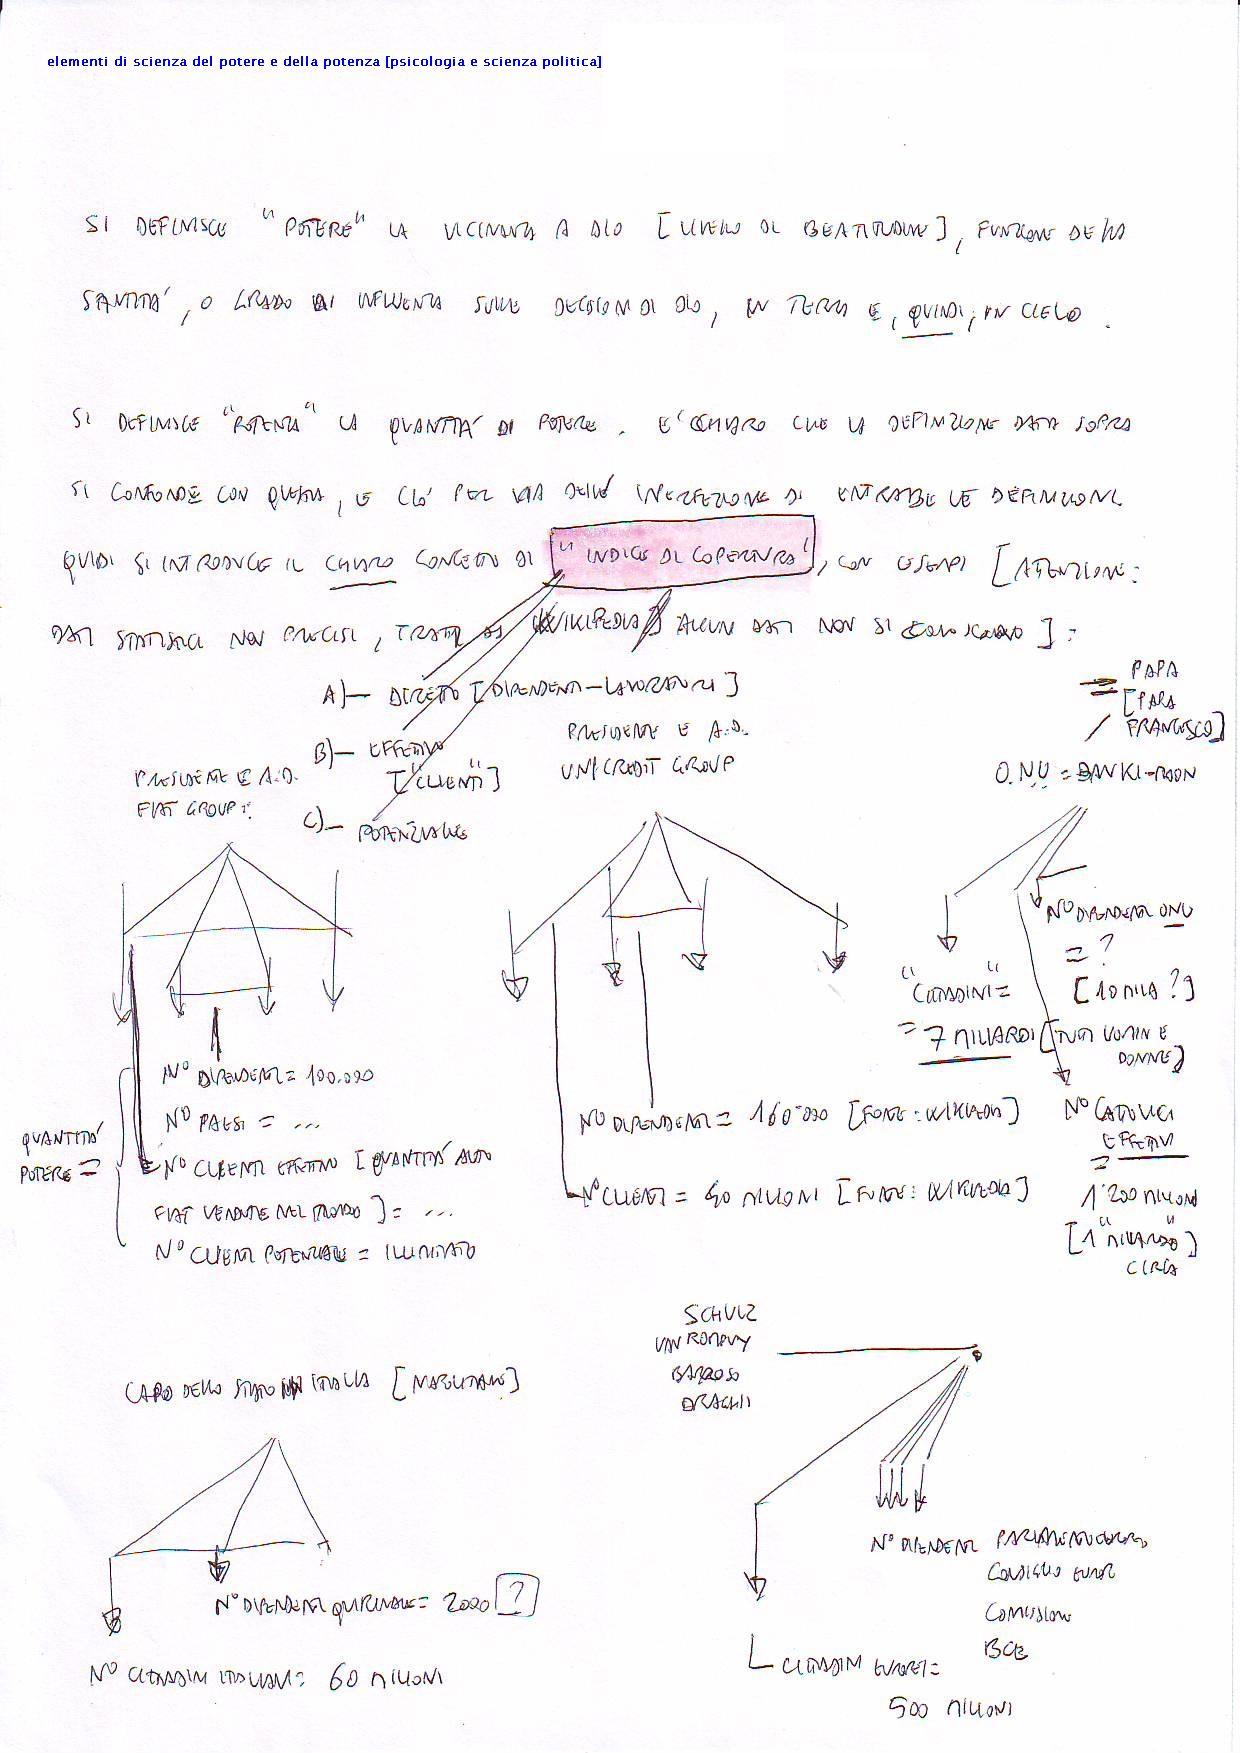 elementi di scienza del potere e della potenza [psicologia e scienza politica]
SI DEFINISCE "POTERE" LA VICINANZA A DIO [LIVELLO DI BEATITUDINE], FUNZIONE DELLA
SANTITA', O GRADO DI INFLUENZA SULLE DECISIONI DI DIO, IN TERRA E, QUINDI, IN CIELO.
SI DEFINISCE "POTENZA" LA QUANTITA' DI POTERE. E' CHIARO CHE LA DEFINIZIONE DATA SOPRA
SI CONFONDE CON QUESTA, E CIO' PER VIA DELL' IMPERFEZIONE DI ENTRAMBE LE DEFINIZIONI.
QUINDI SI INTRODUCE IL CHIARO CONCETTO DI ["INDICE DI COPERTURA"], CON ESEMPI [ATTENZIONE:
DATI STATISTICI NON PRECISI, TRATTI DA WIKIPEDIA ALCUNI DATI NON SI CONOSCONO]:
A)— DIRETTO [DIPENDENTI-LAVORATORI]
B)— EFFETTIVO
["CLIENTI"]
C)— POTENZIALE
PRESIDENTE E A.D.
FIAT GROUP:
PRESIDENTE E A.D.
UNICREDIT GROUP
PAPA
[PAPA
FRANCESCO]
O.N.U = BAN KI-MOON
N° DIPENDENTI = 100.000
N° PAESI = ...
N° CLIENTI EFFETTIVO [QUANTITA' AUTO
FIAT VENDUTE NEL MONDO] = ...
N° CLIENTI POTENZIALE = ILLIMITATO
QUANTITA'
POTERE =
N° DIPENDENTI = 160'000 [FONTE: WIKIPEDIA]
N° CLIENTI = 40 MILIONI [FONTE: WIKIPEDIA]
N° DIPENDENTI ONU
= ?
[10 MILA ?]
"CITTADINI" =
= 7 MILIARDI [TUTTI UOMINI E
DONNE]
N° CATTOLICI
EFFETTIVI
=
1'200 MILIONI
[1 "MILIARDO"]
CIRCA
CAPO DELLO STATO IN ITALIA [NAPOLITANO]
N° DIPENDENTI QUIRINALE = 2000 [?]
N° CITTADINI ITALIANI = 60 MILIONI
SCHULZ
VAN ROMPUY
BARROSO
DRAGHI
N° DIPENDENTI PARLAMENTO EUROPEO
CONSIGLIO EUROP
COMMISSIONE
BCE
CITTADINI EUROPEI =
500 MILIONI